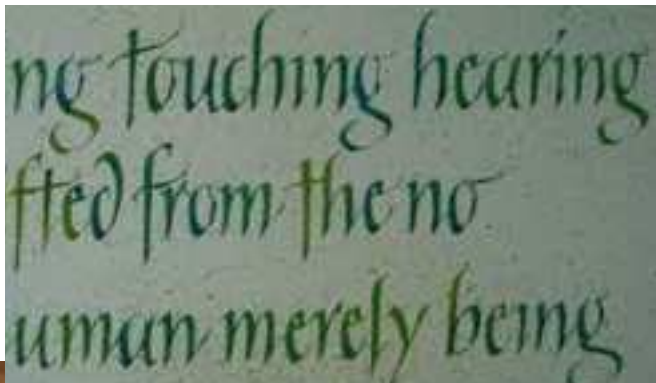 ng touching hearing
fted from the no
uman merely being